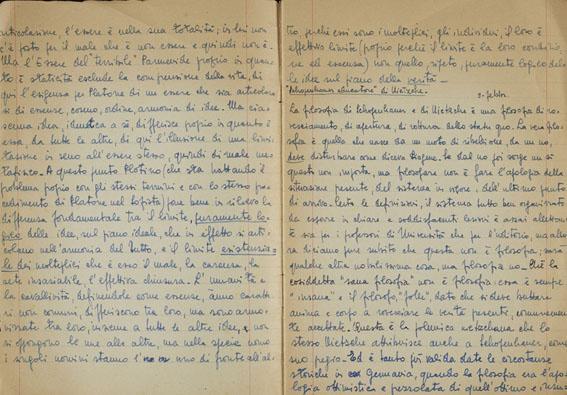 articolazione, l'essere è nella sua totalità; in lui non
c'è posto per il male che è non essere e quindi non è.
Ma l'Essere del "terribile" Parmenide proprio in quan-
to è staticità esclude la comprensione della vita, di
qui l'esigenza per Platone di un essere che sia articolazio
ne di essenze, cosmo, ordine, armonia di idee. Ma cia-
scuna idea, identica a sé, differisce proprio in quanto è
essa, da tutte le altre, di qui l'illusione di una limi-
tazione in seno all'essere stesso, quindi di male me-
tafisico. A questo punto Plotino (che sta trattando il
problema proprio con gli stessi termini e con lo stesso pro-
cedimento di Platone nel Sofista) fa bene in rilievo la
differenza fondamentale tra il limite, puramente lo-
gico delle idee, sul piano ideale, che in effetto si arti-
colano nell'armonia del Tutto, e il limite esistenzia-
le dei molteplici che è esso il male, la carenza, la
sete insaziabile, l'effettiva chiusura. L'umanità e
la cavallinità, definendole come essenze, hanno caratte-
ri non comuni, differiscono tra loro, ma sono armo-
nizzate tra loro, insieme a tutte le altre idee, e non
si oppongono le une alle altre, ma nella specie uomo
i singoli uomini stanno l'uno di fronte all'al-
tro, perché essi sono i molteplici, gli individui, il loro è
effettivo limite (proprio perché il limite è la loro condizio
ne ed essenza) non quello, ripeto, puramente logico delle
idee sul piano della verità —
"Schopenhauer educatore" di Nietzsche. 2. febbr.
La filosofia di Schopenhauer e di Nietzsche è una filosofia di ro-
vesciamento, di apertura, di rottura dello stato quo. La vera filo-
sofia è quella che nasce da un moto di ribellione, da un no,
deve disturbare come diceva Diogene. Se dal no poi sorge un sì
questo non importa, ma filosofare non è fare l'apologia della
situazione presente, del sistema in vigore, dell'ultimo punto
di arrivo. Certo le definizioni, il sistema tutto ben organizzato
da essere in chiare e soddisfacenti lezioni è assai allettante
e sia per i professori di Università che per l'uditorio, ma allo-
ra diciamo pure subito che questa non è filosofia; sarà
qualche altra nobilissima cosa, ma filosofia no. — la
cosiddetta "sana filosofia" non è filosofia: essa è sempre
"insana" e il filosofo, "folle", dato che si deve buttare
anima e corpo a rovesciare le verità presenti, comunemen-
te accettate. Questa è la polemica nietzscheana che lo
stesso Nietzsche attribuisce anche a Schopenhauer, come
suo pregio. Ed è tanto più valida date le circostanze
storiche in Germania, quando la filosofia era l'apo-
logia ottimistica e pezzolata di quell'ottimo e